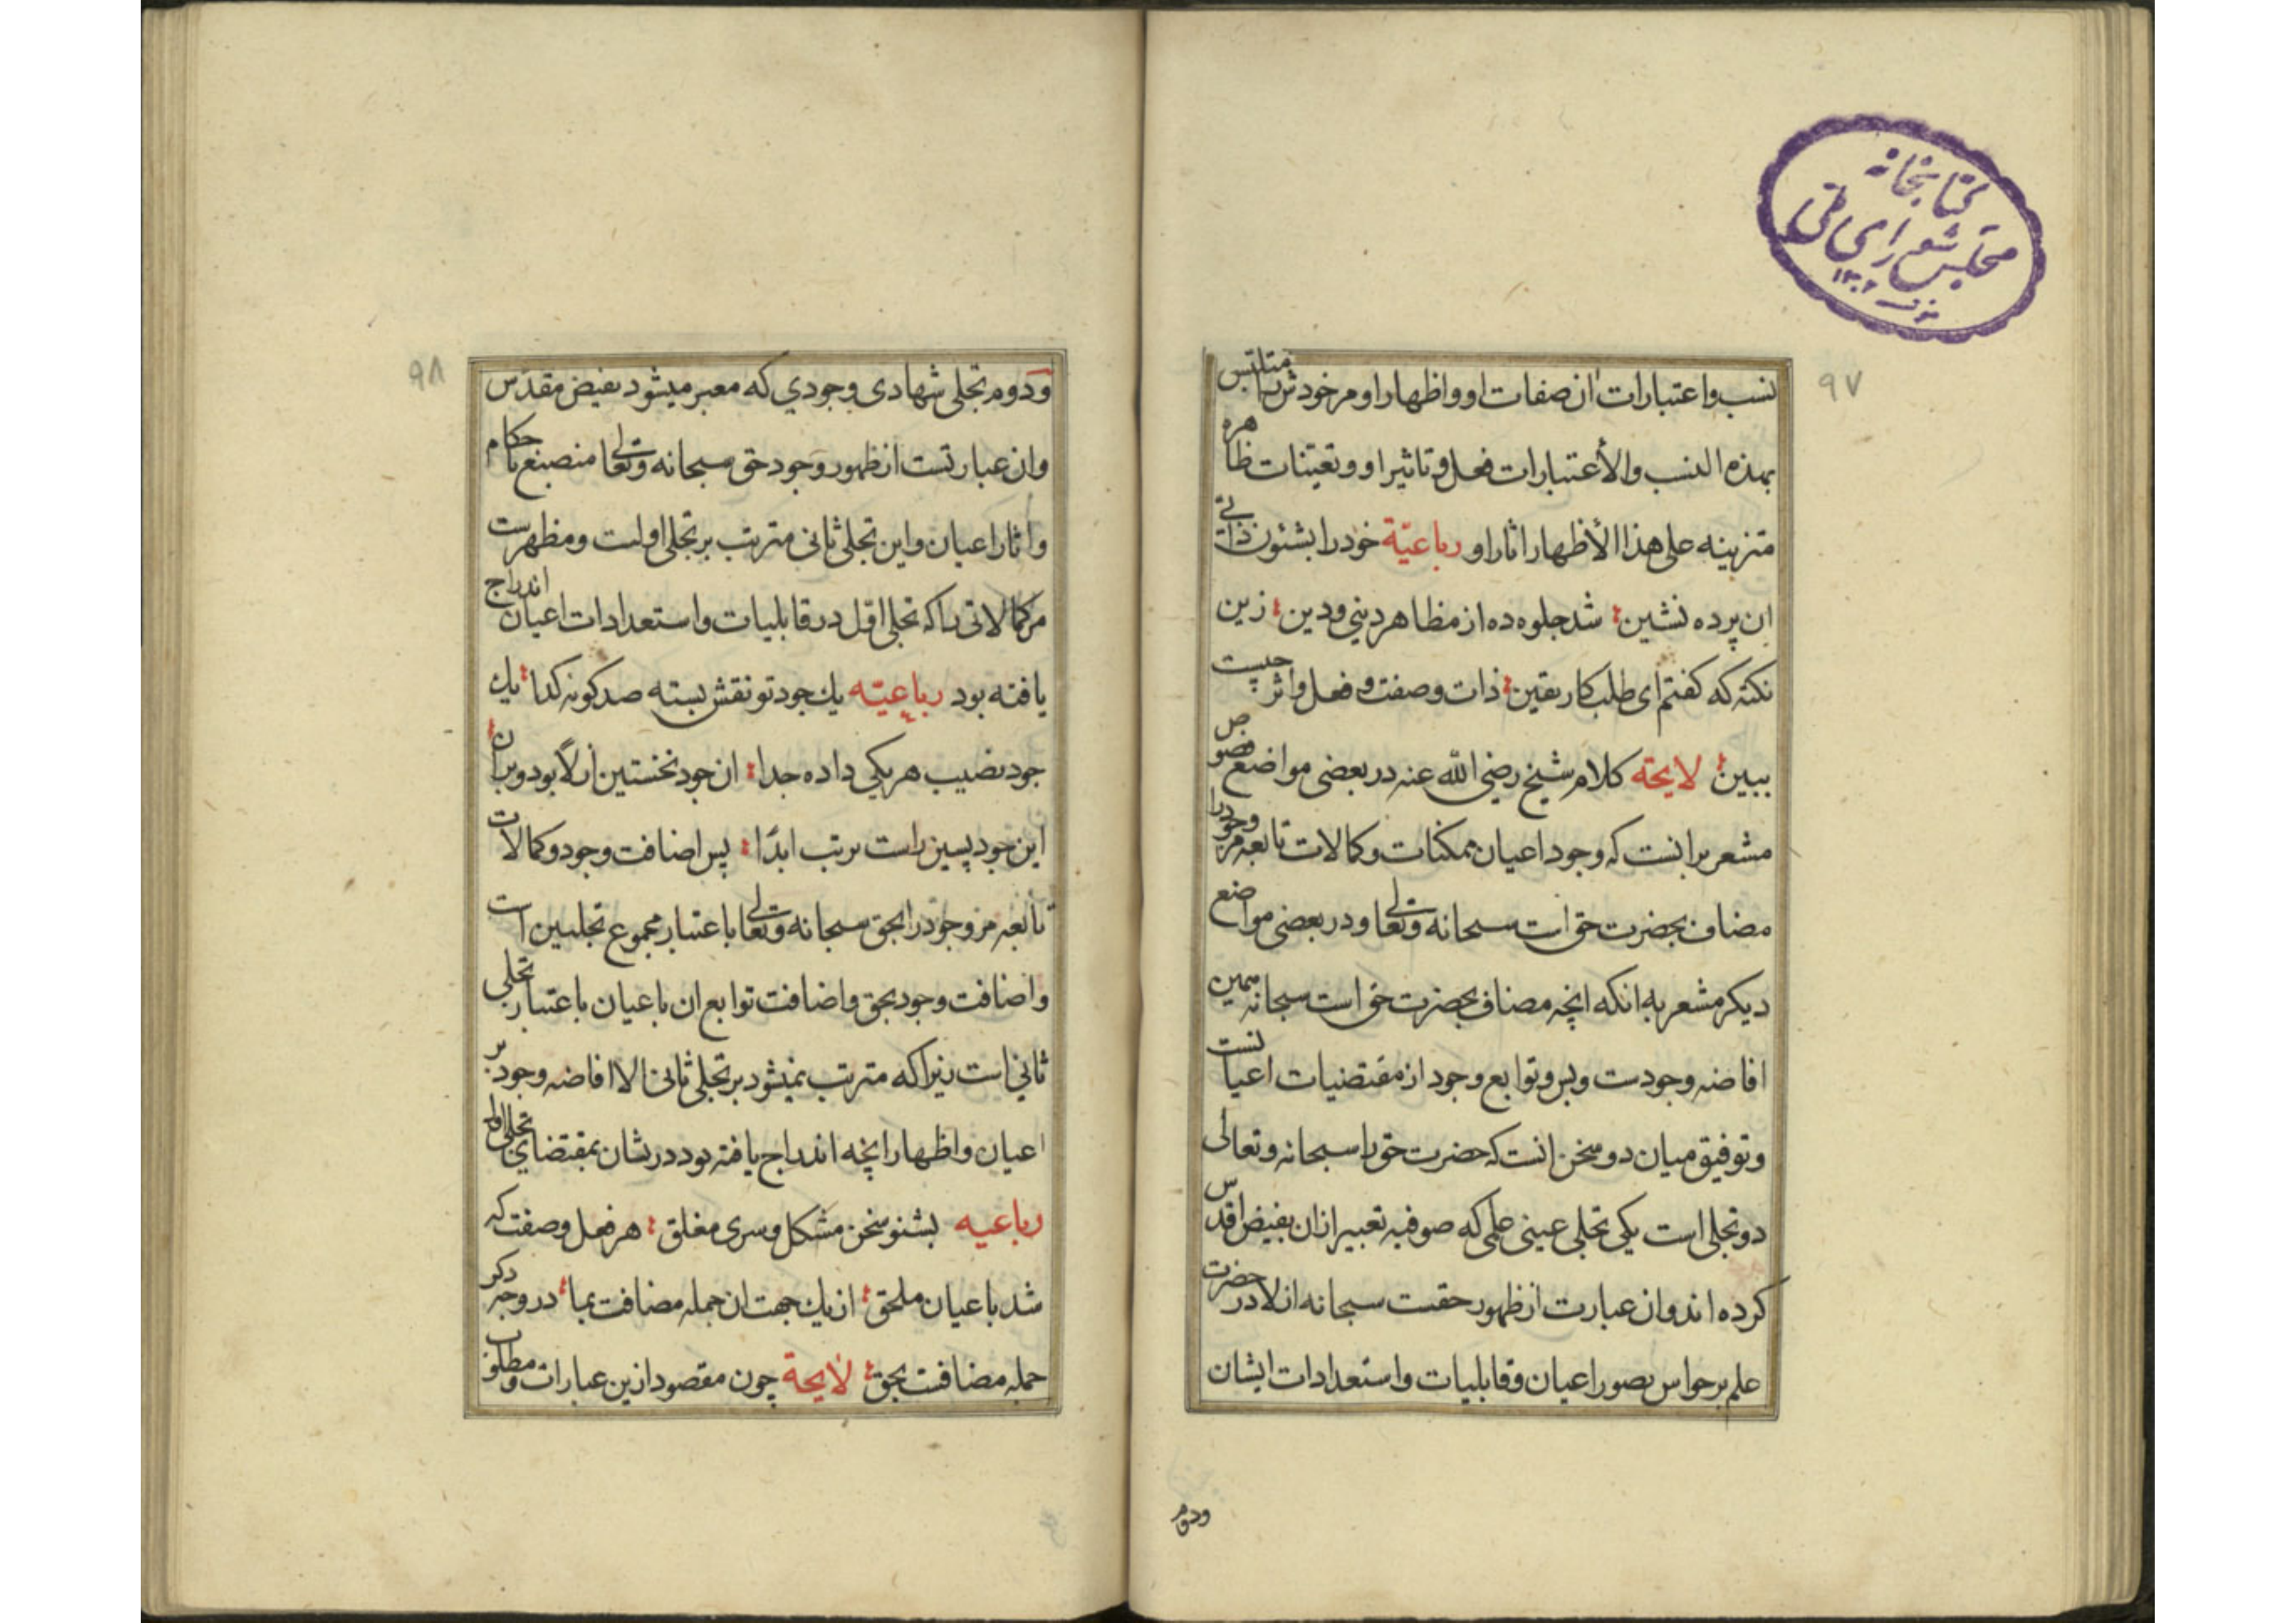 کتابخانه
مجلس شورای ملی
۱۳۰۲
۹۷
نسب و اعتبارات ان صفات او و اظهار او مر خودش را متلبس
بهذه النسب والأعتبارات فعل و تاثیر او و تعینات ظاهره
مترتبه علی هذا الأظهار اثار او رباعیّة خود را بشئون ذاتی
ان پرده نشین شد جلوه ده از مظاهر دینی و دین زین
نکته که گفتم ای طلبکار یقین ذات و صفت و فعل و اثر چیست
ببین لایحة کلام شیخ رضی الله عنه در بعضی مواضع فصوص
مشعر برانست که وجود اعیان ممکنات و کمالات تابعه مر وجود را
مضاف بحضرت حق است سبحانه و تعالی و در بعضی مواضع
دیکر مشعر به انکه انچه مضاف بحضرت حق است سبحانه همین
افاضه وجودست و بس و توابع وجود از مقتضیات اعیانست
و توفیق میان دو سخن انست که حضرت حق را سبحانه و تعالی
دو تجلی است یکی تجلی عینی علمی که صوفیه تعبیر ازان بفیض اقدس
کرده اند و ان عبارت از ظهور حقست سبحانه ازلا در حضرت
علم بر حواس بصور اعیان و قابلیات و استعدادات ایشان
ودوم
۹۸
ودوم تجلی شهادی وجودی که معبر میشود بفیض مقدس
وان عبارتست از ظهور وجود حق سبحانه و تعالی منصبغ باحکام
و اثار اعیان و این تجلی ثانی مترتب بر تجلی اولست و مظهرست
مر کمالاتی را که تجلی اول در قابلیات و استعدادات اعیان اندراج
یافته بود رباعیّه یك جود تو نقش بسته صد کونه کدا یك
جود نصیب هر یکی داده جدا ان جود نخستین ازلًا بود و بران
این جود پسین راست ترتب ابدًا پس اضافت وجود و کمالات
تابعه مر وجود را بحق سبحانه و تعالی باعتبار مجموع تجلیین است
و اضافت وجود بحق و اضافت توابع ان باعیان باعتبار تجلی
ثانی است زیرا که مترتب نمیشود بر تجلی ثانی الا افاضه وجود بر
اعیان و اظهار انچه اندراج یافته بود در شان بمقتضای تجلی اول
رباعیه بشنو سخن مشکل و سری مغلق هر فعل و صفت که
شد باعیان ملحق از یك جهت ان جمله مضافت بما در وجه دکر
جمله مضافت بحق لایحة چون مقصود ازین عبارات و مطلوب